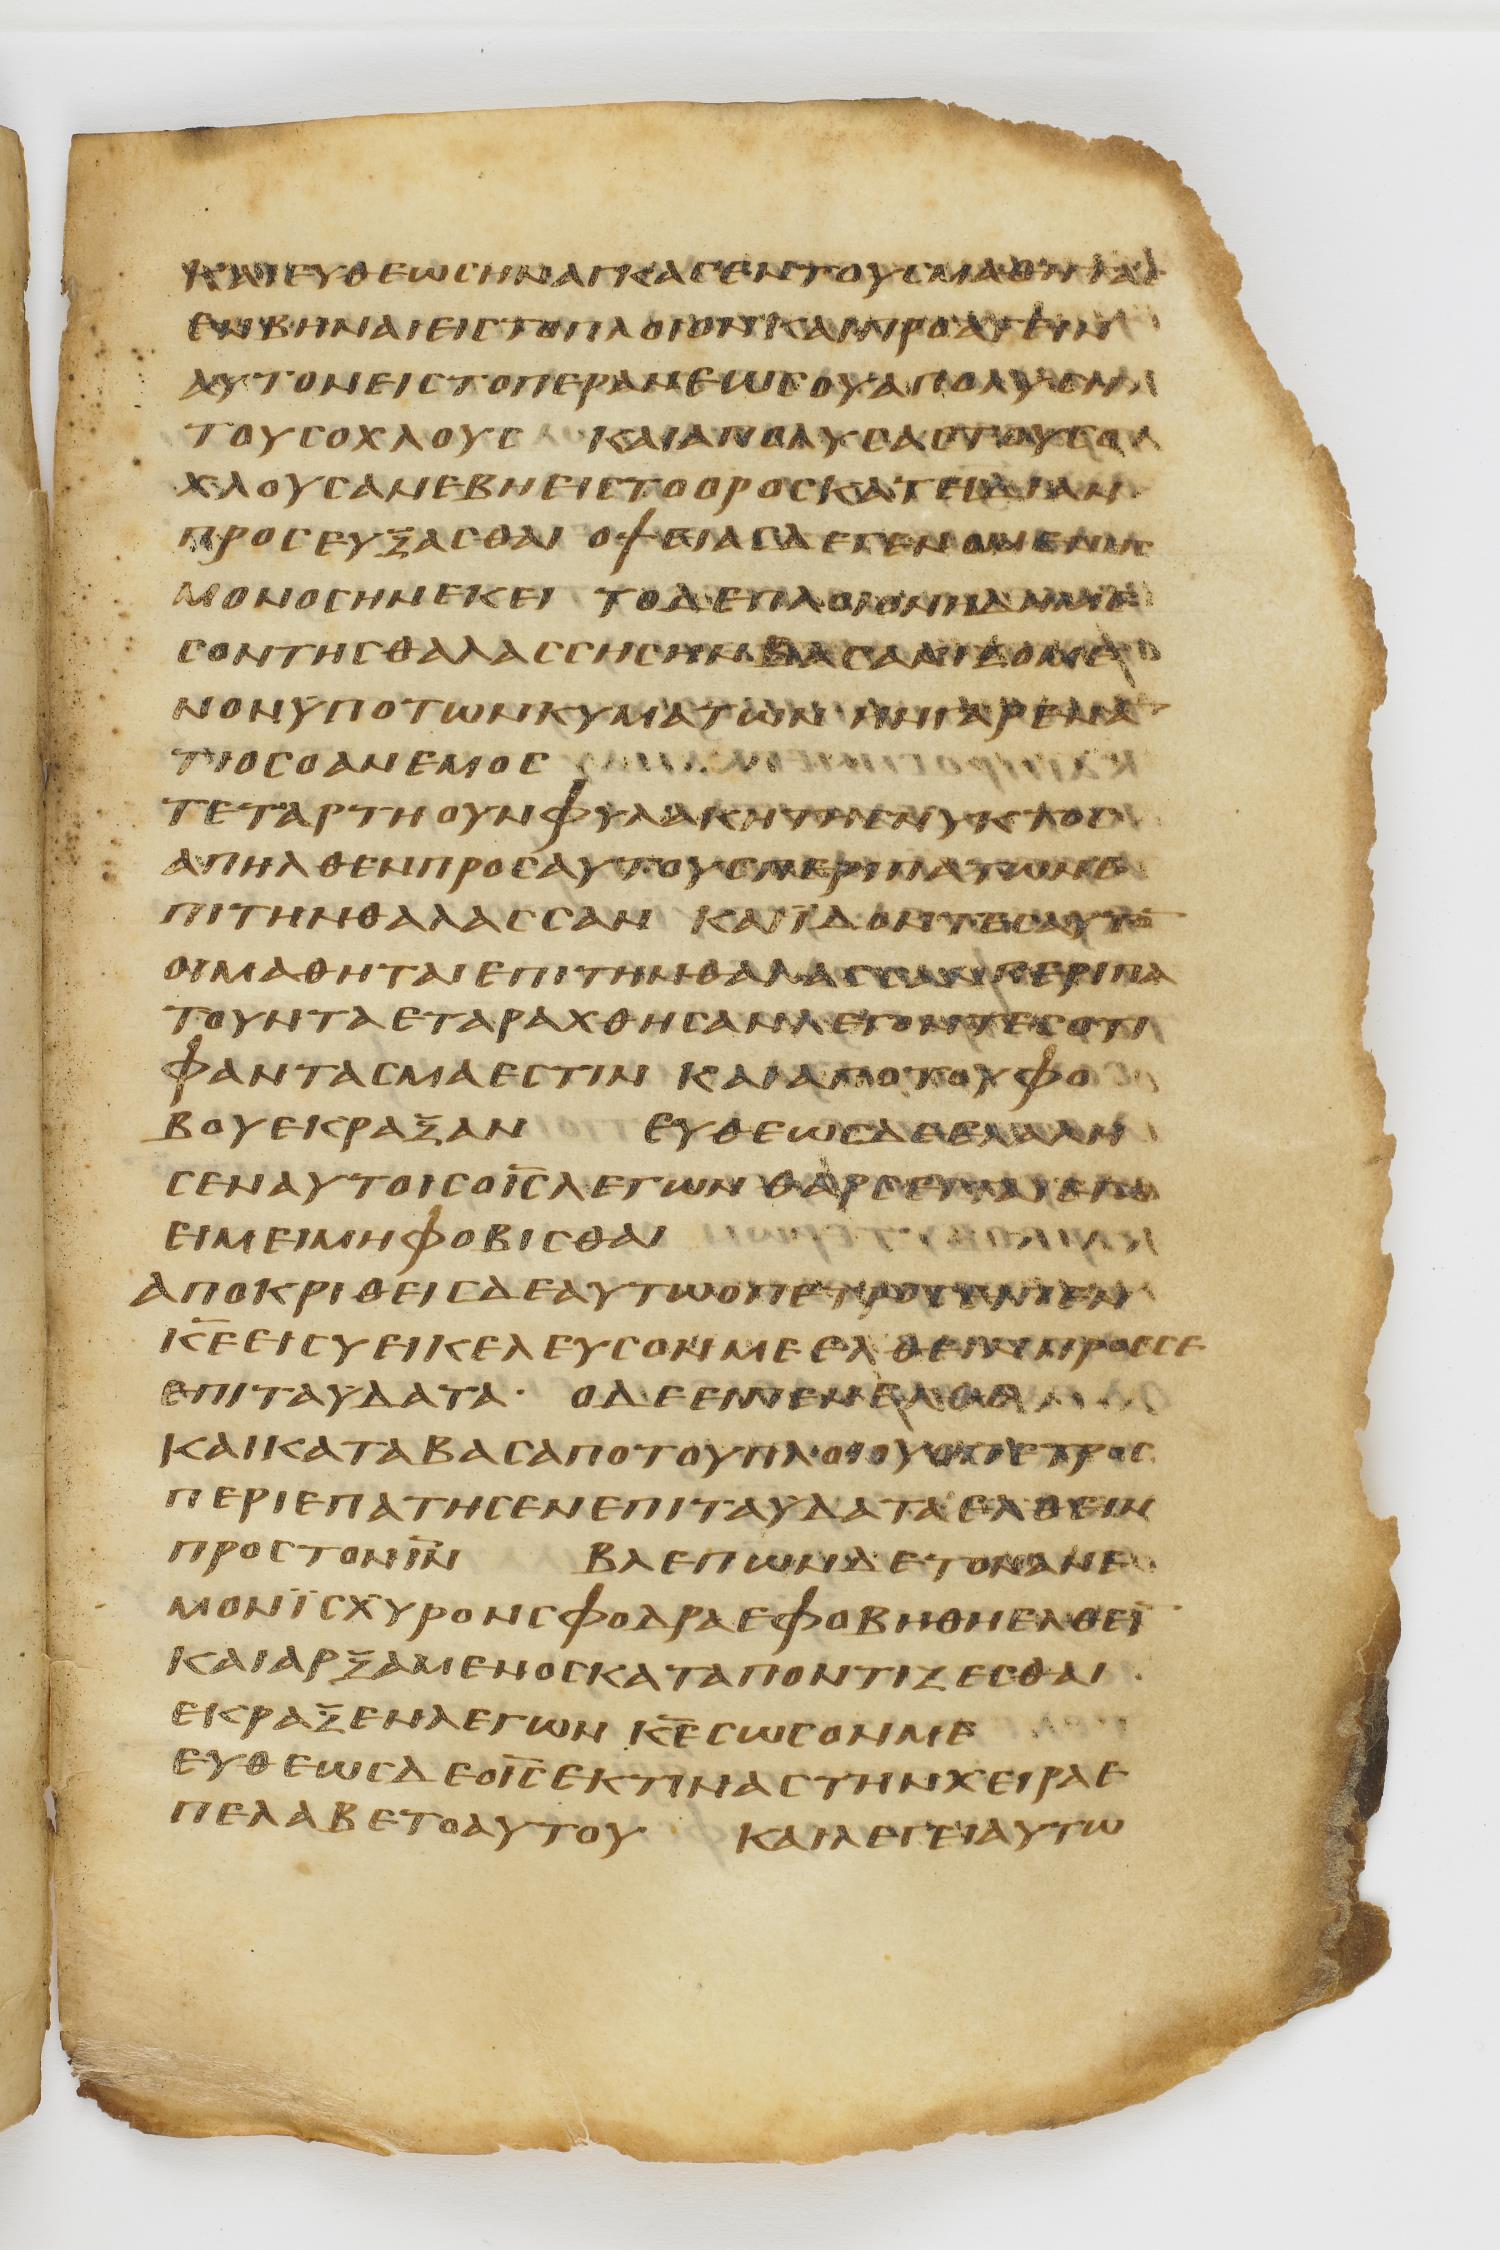 ΚΑΙΕΥΘΕΩСΗΝΑΓΚΑСΕΝΤΟΥСΜΑΘΗΤΑС
ΕΜΒΗΝΑΙΕΙСΤΟΠΛΟΙΟΝΚΑΙΠΡΟΑΓΕΙΝ
ΑΥΤΟΝΕΙСΤΟΠΕΡΑΝΕΩСΟΥΑΠΟΛΥСΗ
ΤΟΥСΟΧΛΟΥС ΚΑΙΑΠΟΛΥСΑСΤΟΥСΟ
ΧΛΟΥСΑΝΕΒΗΕΙСΤΟΟΡΟСΚΑΤΕΙΔΙΑΝ
ΠΡΟСΕΥΞΑСΘΑΙ ΟΨΕΙΑСΔΕΓΕΝΟΜΕΝΗС
ΜΟΝΟСΗΝΕΚΕΙ ΤΟΔΕΠΛΟΙΟΝΗΔΗΜΕ
СΟΝΤΗСΘΑΛΑССΗСΗΝΒΑСΑΝΙΖΟΜΕ
ΝΟΝΥΠΟΤΩΝΚΥΜΑΤΩΝ ΗΝΓΑΡΕΝΑ
ΤΙΟСΟΑΝΕΜΟС
ΤΕΤΑΡΤΗΟΥΝΦΥΛΑΚΗΤΗСΝΥΚΤΟС
ΑΠΗΛΘΕΝΠΡΟСΑΥΤΟΥСΠΕΡΙΠΑΤΩΝΕ
ΠΙΤΗΝΘΑΛΑССΑΝ ΚΑΙΪΔΟΝΤΕСΑΥΤΟΝ
ΟΙΜΑΘΗΤΑΙΕΠΙΤΗΝΘΑΛΑССΑΝΠΕΡΙΠΑ
ΤΟΥΝΤΑΕΤΑΡΑΧΘΗСΑΝΛΕΓΟΝΤΕСΟΤΙ
ΦΑΝΤΑСΜΑΕСΤΙΝ ΚΑΙΑΠΟΤΟΥΦΟ
ΒΟΥΕΚΡΑΞΑΝ ΕΥΘΕΩСΔΕΕΛΑΛΗ
СΕΝΑΥΤΟΙСΟΙ̅С̅ΛΕΓΩΝ ΘΑΡСΕΙΤΑΙΕΓΩ
ΕΙΜΕΙΜΗΦΟΒΙСΘΑΙ
ΑΠΟΚΡΙΘΕΙСΔΕΑΥΤΩΟΠΕΤΡΟСΕΙΠΕΝ
Κ̅Ε̅ΕΙСΥΕΙΚΕΛΕΥСΟΝΜΕΕΛΘΕΙΝΠΡΟССΕ
ΕΠΙΤΑΥΔΑΤΑ· ΟΔΕΕΙΠΕΝΕΛΘΕ
ΚΑΙΚΑΤΑΒΑСΑΠΟΤΟΥΠΛΟΙΟΥΟΠΕΤΡΟС
ΠΕΡΙΕΠΑΤΗСΕΝΕΠΙΤΑΥΔΑΤΑΕΛΘΕΙΝ
ΠΡΟСΤΟΝΙ̅Ν̅ ΒΛΕΠΩΝΔΕΤΟΝΑΝΕ
ΜΟΝΪСΧΥΡΟΝСΦΟΔΡΑΕΦΟΒΗΘΗΕΛΘΕΙΝ
ΚΑΙΑΡΞΑΜΕΝΟСΚΑΤΑΠΟΝΤΙΖΕСΘΑΙ
ΕΚΡΑΞΕΝΛΕΓΩΝ Κ̅Ε̅СΩСΟΝΜΕ
ΕΥΘΕΩСΔΕΟΙ̅С̅ΕΚΤΙΝΑСΤΗΝΧΕΙΡΑΕ
ΠΕΛΑΒΕΤΟΑΥΤΟΥ ΚΑΙΛΕΓΕΙΑΥΤΩ